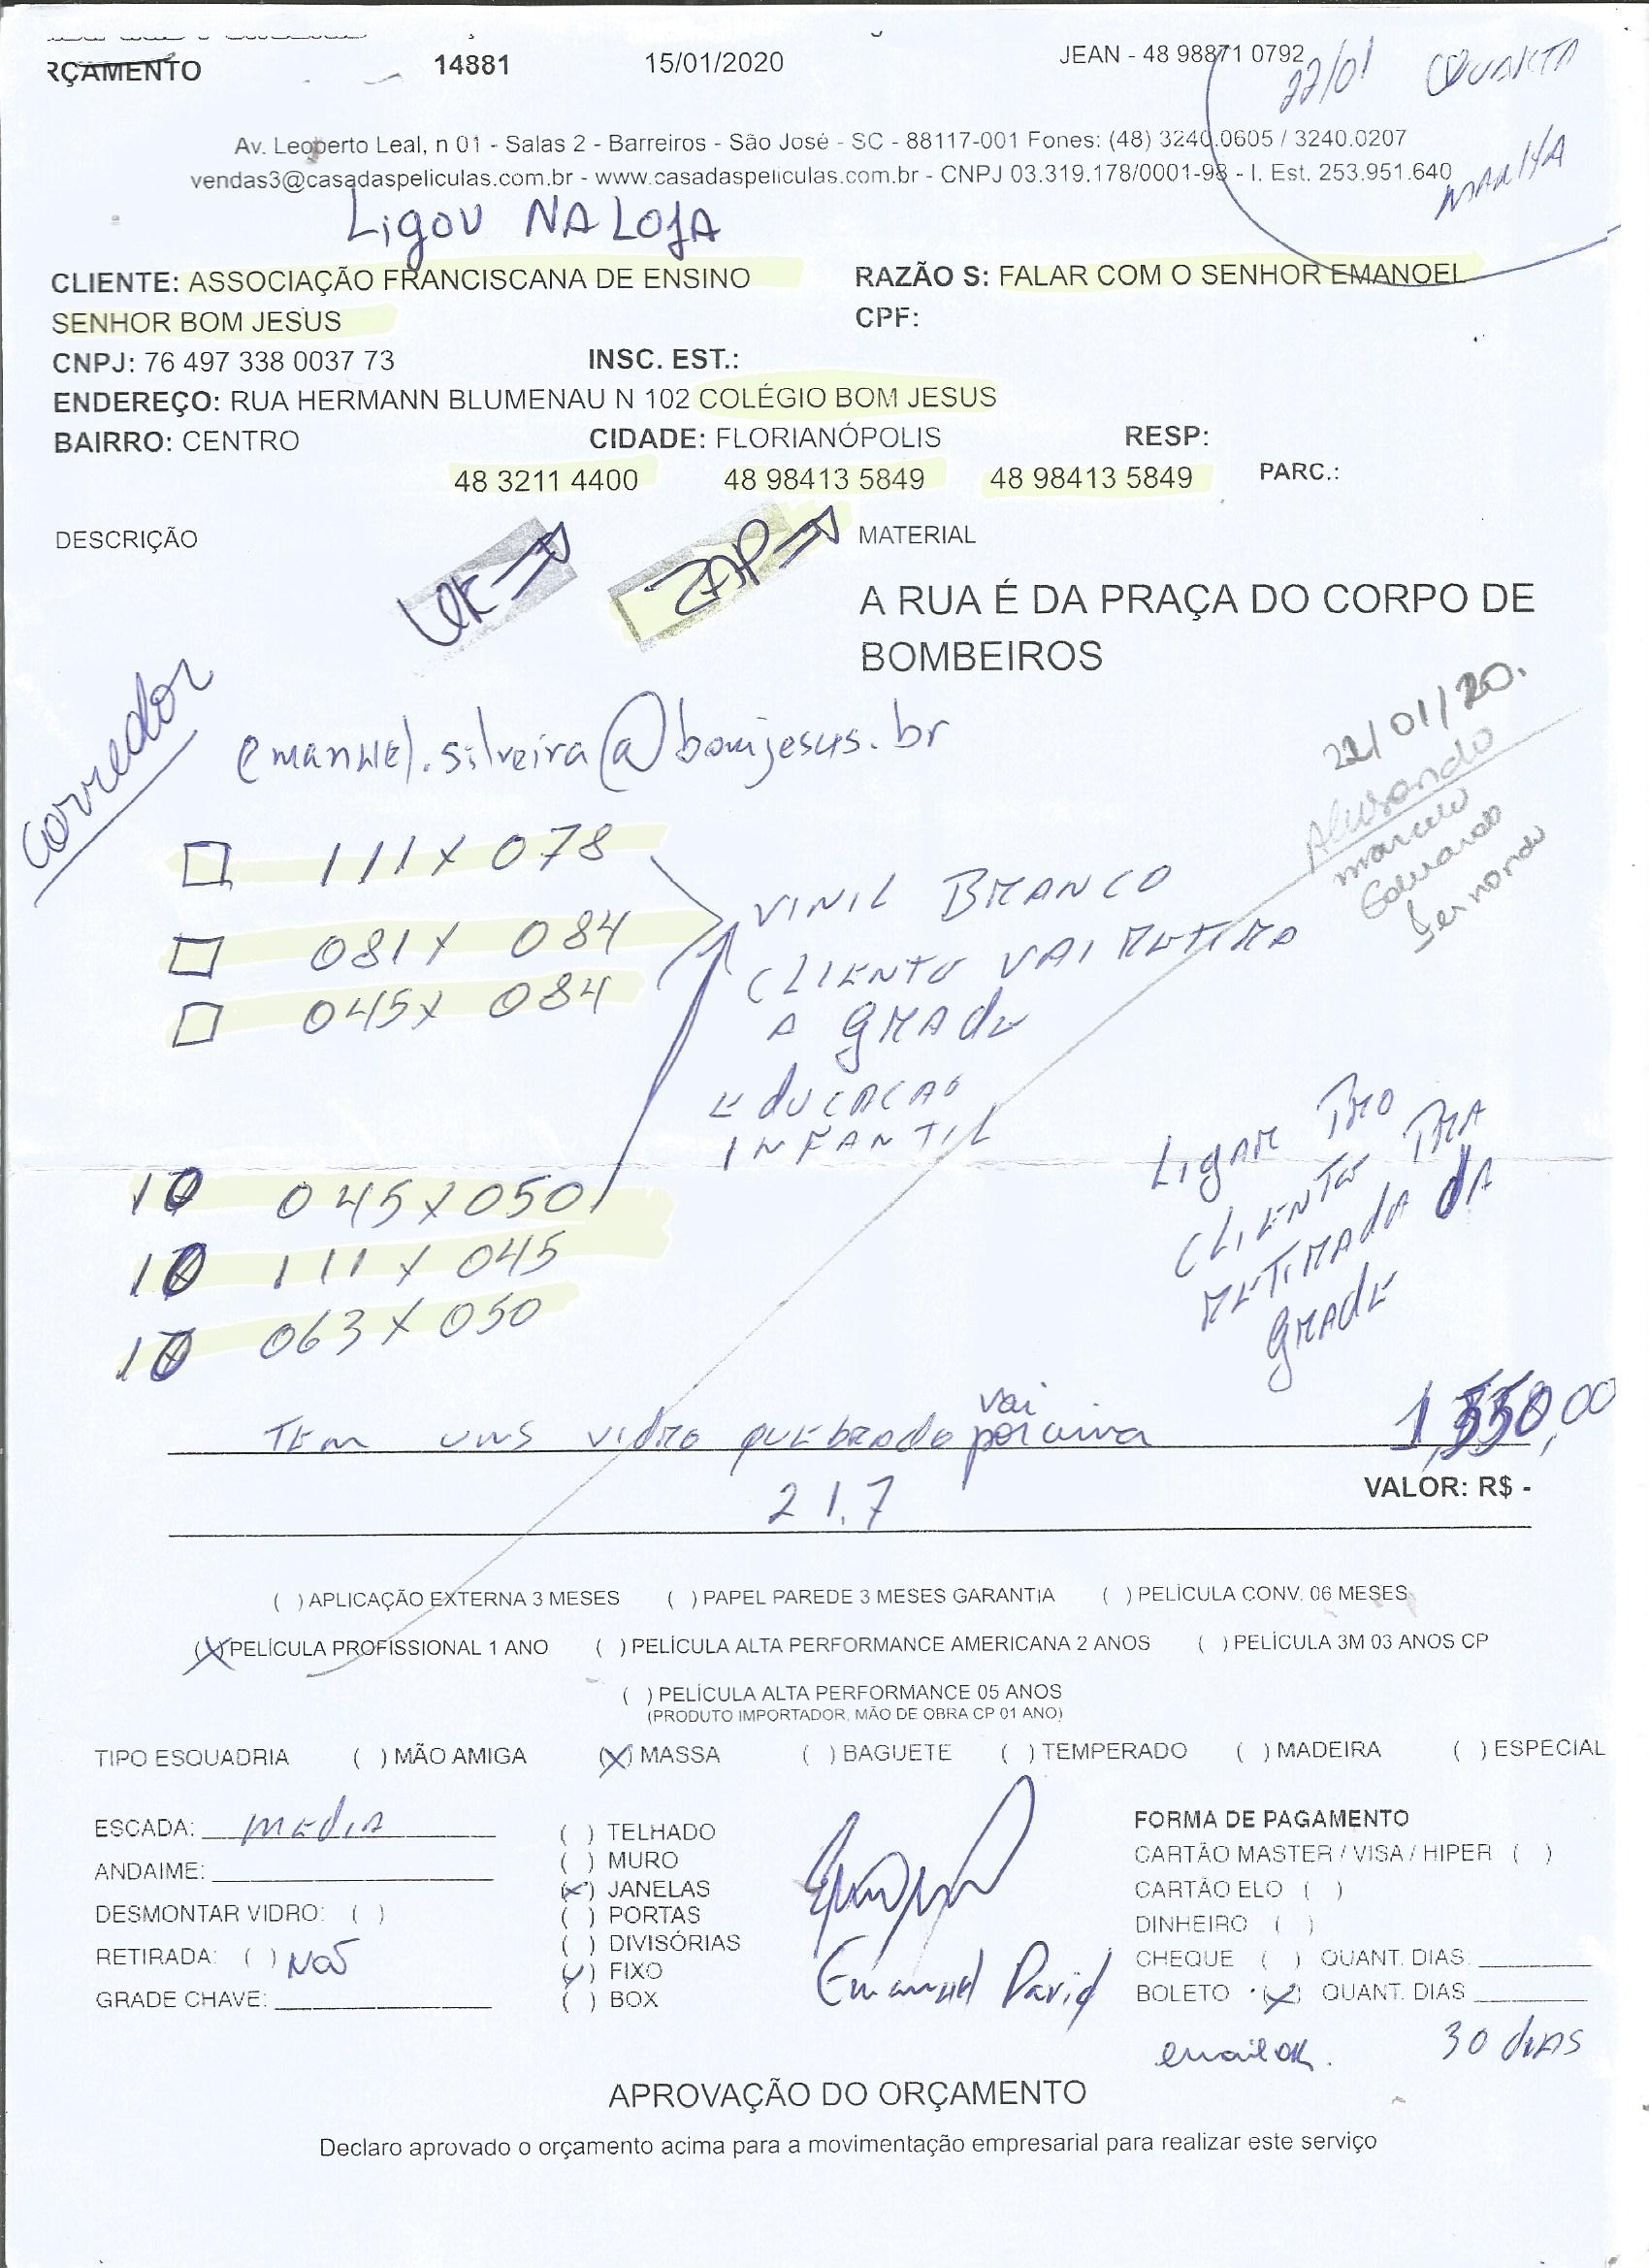 14881 15/01/2020 JEAN - 48 98871 0792
RÇAMENTO
22/01 QUARTA
MANHÃ
Av. Leoberto Leal, n 01 - Salas 2 - Barreiros - São José - SC - 88117-001 Fones: (48) 3240.0605 / 3240.0207
vendas3@casadaspeliculas.com.br - www.casadaspeliculas.com.br - CNPJ 03.319.178/0001-98 - I. Est. 253.951.640
LigoU NA LOJA
CLIENTE: ASSOCIAÇÃO FRANCISCANA DE ENSINO RAZÃO S: FALAR COM O SENHOR EMANOEL
SENHOR BOM JESUS CPF:
CNPJ: 76 497 338 0037 73 INSC. EST.:
ENDEREÇO: RUA HERMANN BLUMENAU N 102 COLÉGIO BOM JESUS
BAIRRO: CENTRO CIDADE: FLORIANÓPOLIS RESP:
48 3211 4400 48 98413 5849 48 98413 5849 PARC.:
DESCRIÇÃO MATERIAL
ZAP
A RUA É DA PRAÇA DO CORPO DE
BOMBEIROS
corredor
emanuel.silveira@bomjesus.br
22/01/20.
Marcelo
Eduardo
Fernando
111 x 078
081 x 084
045 x 084
VINIL BRANCO
CLIENTE VAI RETIRA
A GRADE
EDUCACAO
INFANTIL
10 045 x 050
10 111 x 045
10 063 x 050
LIGAR PRO
CLIENTE PRA
RETIRADA DA
GRADE
TEM UNS VIDRO QUEBRADO vai por cima
21.7
VALOR: R$ -
( ) APLICAÇÃO EXTERNA 3 MESES ( ) PAPEL PAREDE 3 MESES GARANTIA ( ) PELÍCULA CONV. 06 MESES
(X) PELÍCULA PROFISSIONAL 1 ANO ( ) PELÍCULA ALTA PERFORMANCE AMERICANA 2 ANOS ( ) PELÍCULA 3M 03 ANOS CP
( ) PELÍCULA ALTA PERFORMANCE 05 ANOS
(PRODUTO IMPORTADOR, MÃO DE OBRA CP 01 ANO)
TIPO ESQUADRIA ( ) MÃO AMIGA (X) MASSA ( ) BAGUETE ( ) TEMPERADO ( ) MADEIRA ( ) ESPECIAL
ESCADA: MEDIA
ANDAIME:
DESMONTAR VIDRO: ( )
RETIRADA: ( ) NÃO
GRADE CHAVE:
( ) TELHADO
( ) MURO
(x) JANELAS
( ) PORTAS
( ) DIVISÓRIAS
(x) FIXO
( ) BOX
Emanuel David
FORMA DE PAGAMENTO
CARTÃO MASTER / VISA / HIPER ( )
CARTÃO ELO ( )
DINHEIRO ( )
CHEQUE ( ) QUANT. DIAS
BOLETO (x) QUANT. DIAS
email ok. 30 DIAS
APROVAÇÃO DO ORÇAMENTO
Declaro aprovado o orçamento acima para a movimentação empresarial para realizar este serviço